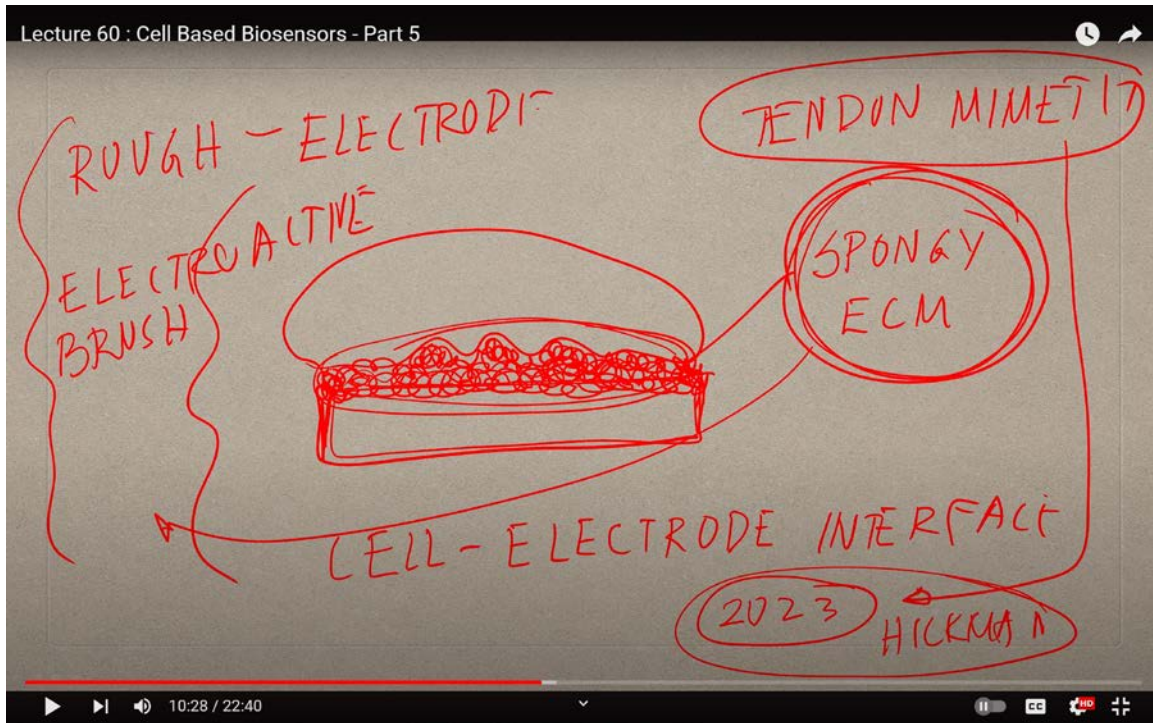 Lecture 60 : Cell Based Biosensors - Part 5
ROUGH - ELECTRODE
TENDON MIMETIC
ELECTROACTIVE
BRUSH
SPONGY
ECM
CELL-ELECTRODE INTERFACE
2023
HICKMAN
10:28 / 22:40
CC
HD